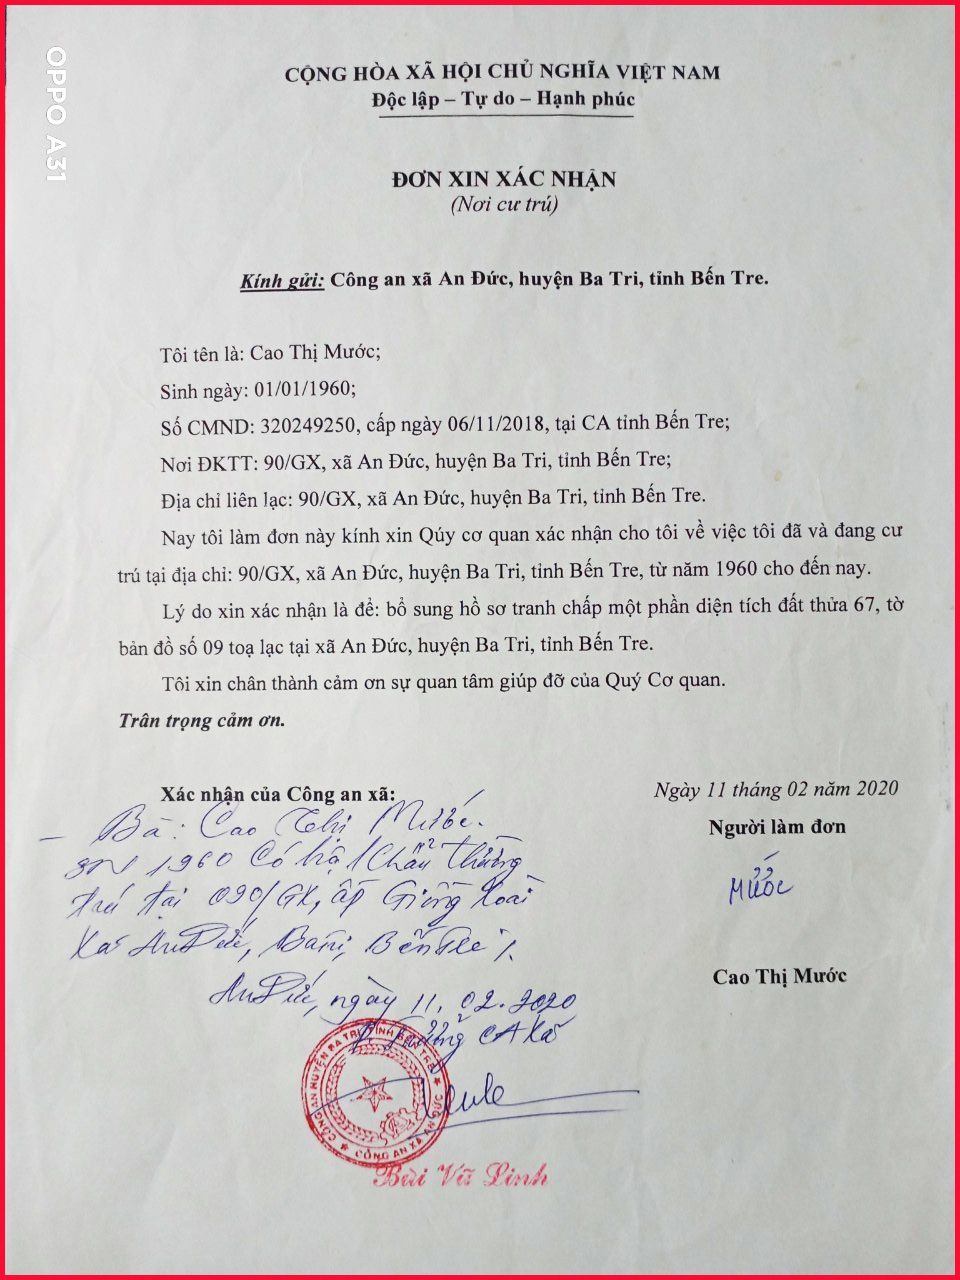 OPPO A31
CỘNG HÒA XÃ HỘI CHỦ NGHĨA VIỆT NAM
Độc lập – Tự do – Hạnh phúc
ĐƠN XIN XÁC NHẬN
(Nơi cư trú)
Kính gửi: Công an xã An Đức, huyện Ba Tri, tỉnh Bến Tre.
Tôi tên là: Cao Thị Mước;
Sinh ngày: 01/01/1960;
Số CMND: 320249250, cấp ngày 06/11/2018, tại CA tỉnh Bến Tre;
Nơi ĐKTT: 90/GX, xã An Đức, huyện Ba Tri, tỉnh Bến Tre;
Địa chỉ liên lạc: 90/GX, xã An Đức, huyện Ba Tri, tỉnh Bến Tre.
Nay tôi làm đơn này kính xin Qúy cơ quan xác nhận cho tôi về việc tôi đã và đang cư
trú tại địa chỉ: 90/GX, xã An Đức, huyện Ba Tri, tỉnh Bến Tre, từ năm 1960 cho đến nay.
Lý do xin xác nhận là để: bổ sung hồ sơ tranh chấp một phần diện tích đất thửa 67, tờ
bản đồ số 09 toạ lạc tại xã An Đức, huyện Ba Tri, tỉnh Bến Tre.
Tôi xin chân thành cảm ơn sự quan tâm giúp đỡ của Quý Cơ quan.
Trân trọng cảm ơn.
Xác nhận của Công an xã:
– Bà: Cao Thị Mước.
SN 1960 Có hộ khẩu thường
trú tại 090/GX, ấp Giồng Xoài
Xã An Đức, Ba Tri, Bến Tre ./.
An Đức, ngày 11.02.2020
Trưởng CA Xã
CÔNG AN HUYỆN BA TRI TỈNH BẾN TRE
CÔNG AN XÃ AN ĐỨC
Bùi Vũ Linh
Ngày 11 tháng 02 năm 2020
Người làm đơn
Mước
Cao Thị Mước